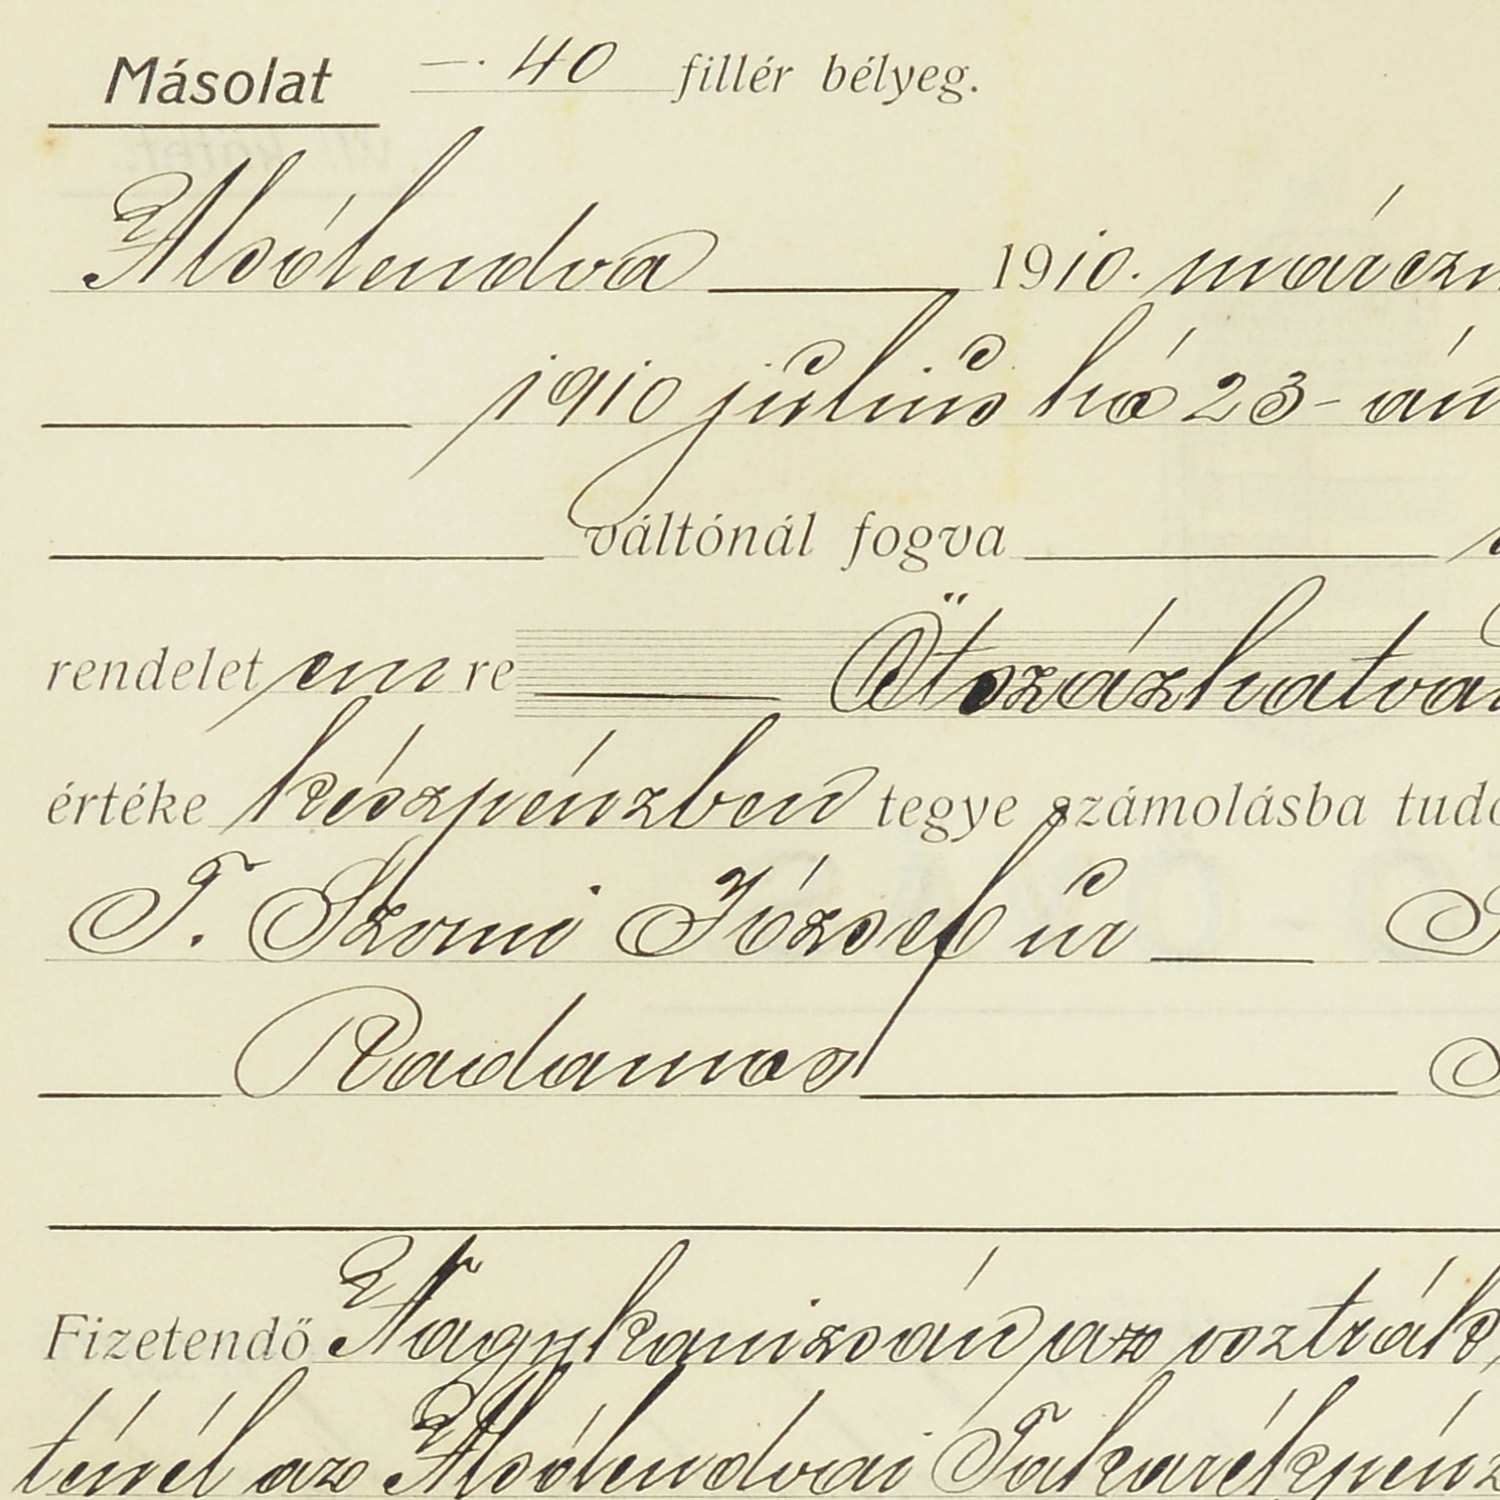 Másolat —. 40 fillér bélyeg.
Alsólendva 1910. márczi
1910 július hó 23-án
váltónál fogva
rendeletemre Ötszázhatva
értéke készpénzben tegye számolásba tudó
T. Szomi József úr
Radamos
Fizetendő Nagykanizsán az osztrák,
ténél az Alsólendvai Takarékpénz